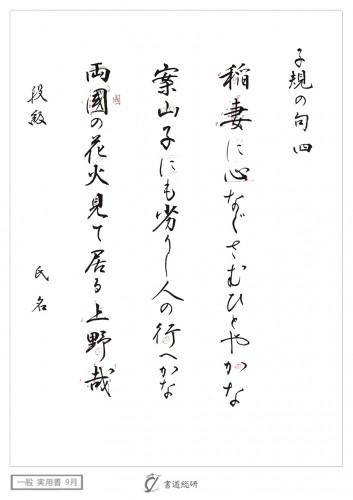 子規の句 四
稲妻に心なぐさむひとやかな
案山子にも劣りし人の行へかな
両國の花火見て居る上野哉
段級
氏名
一般 実用書 9月
書道総研